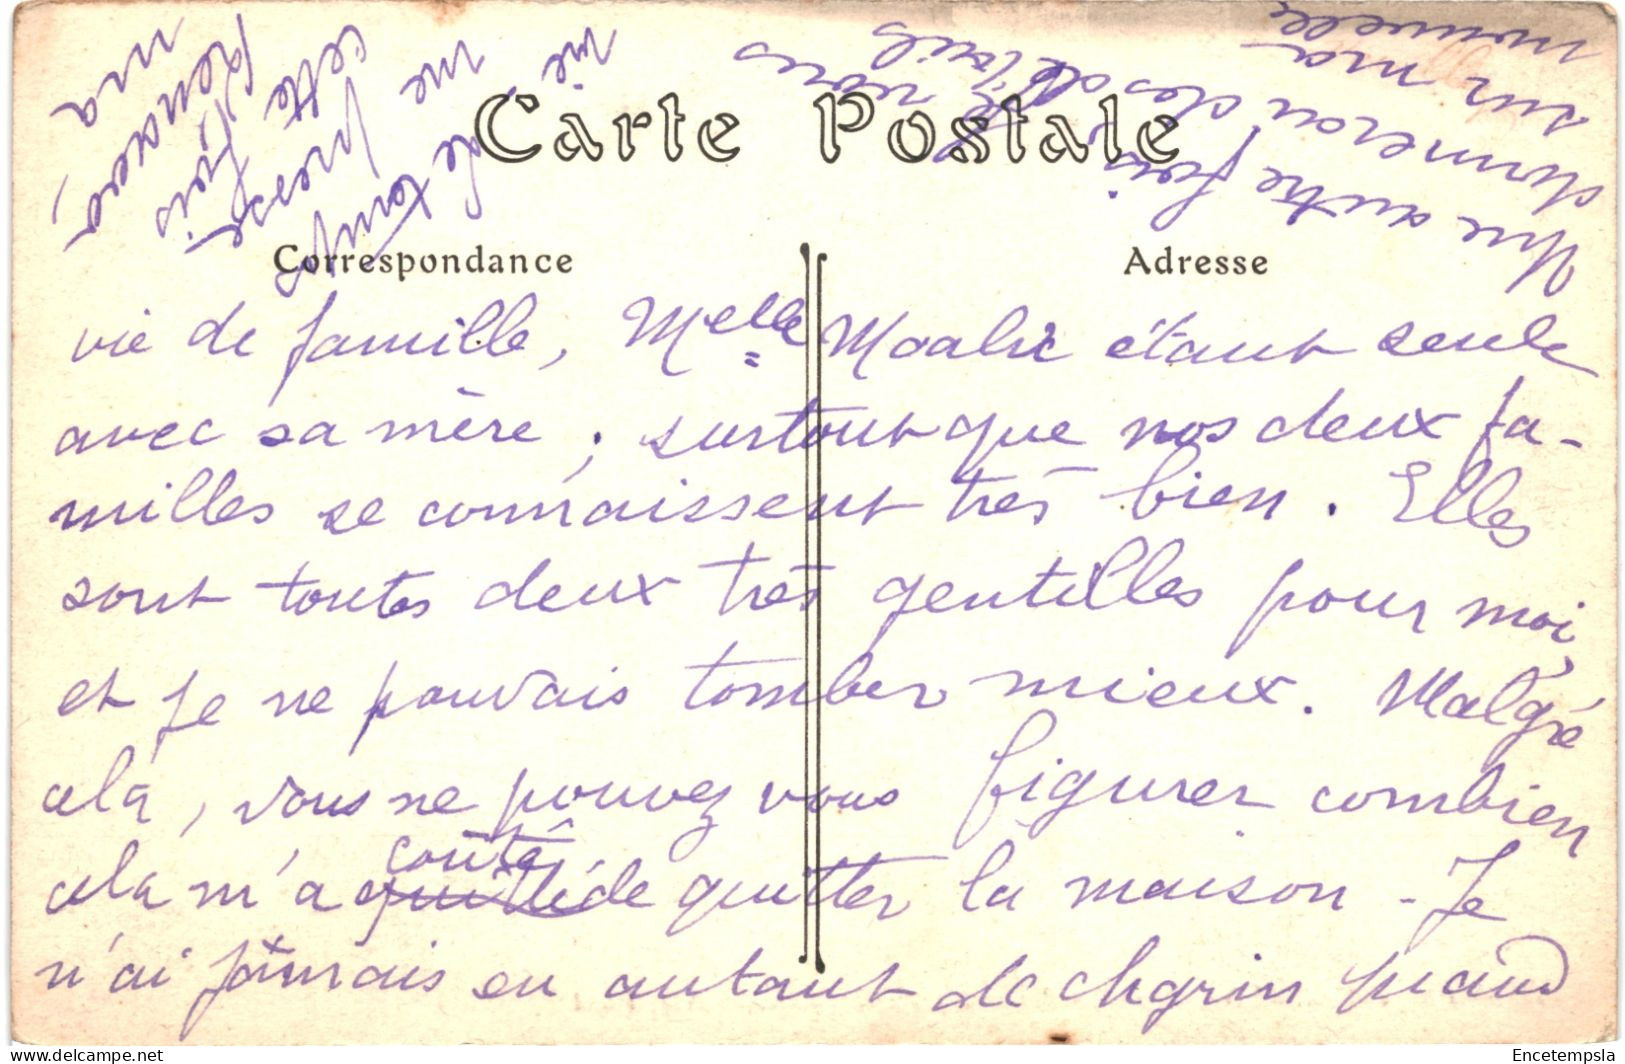 Carte Postale
Correspondance
Adresse
vie de famille, Melle étant seule
avec sa mère ; surtout que nos deux fa-
milles se connaissent très bien. Elles
sont toutes deux très gentilles pour moi,
et je ne pouvais tomber mieux. Malgré
cela, vous ne pouvez vous figurer combien
coûté
cela m'a quitté de quitter la maison - Je
n'ai jamais eu autant de chgrin quand
Une autre fois
donnerai des détails
sur ma
nouvelle
vie
de temps
me
pressé
cette
fois
Encetempsla